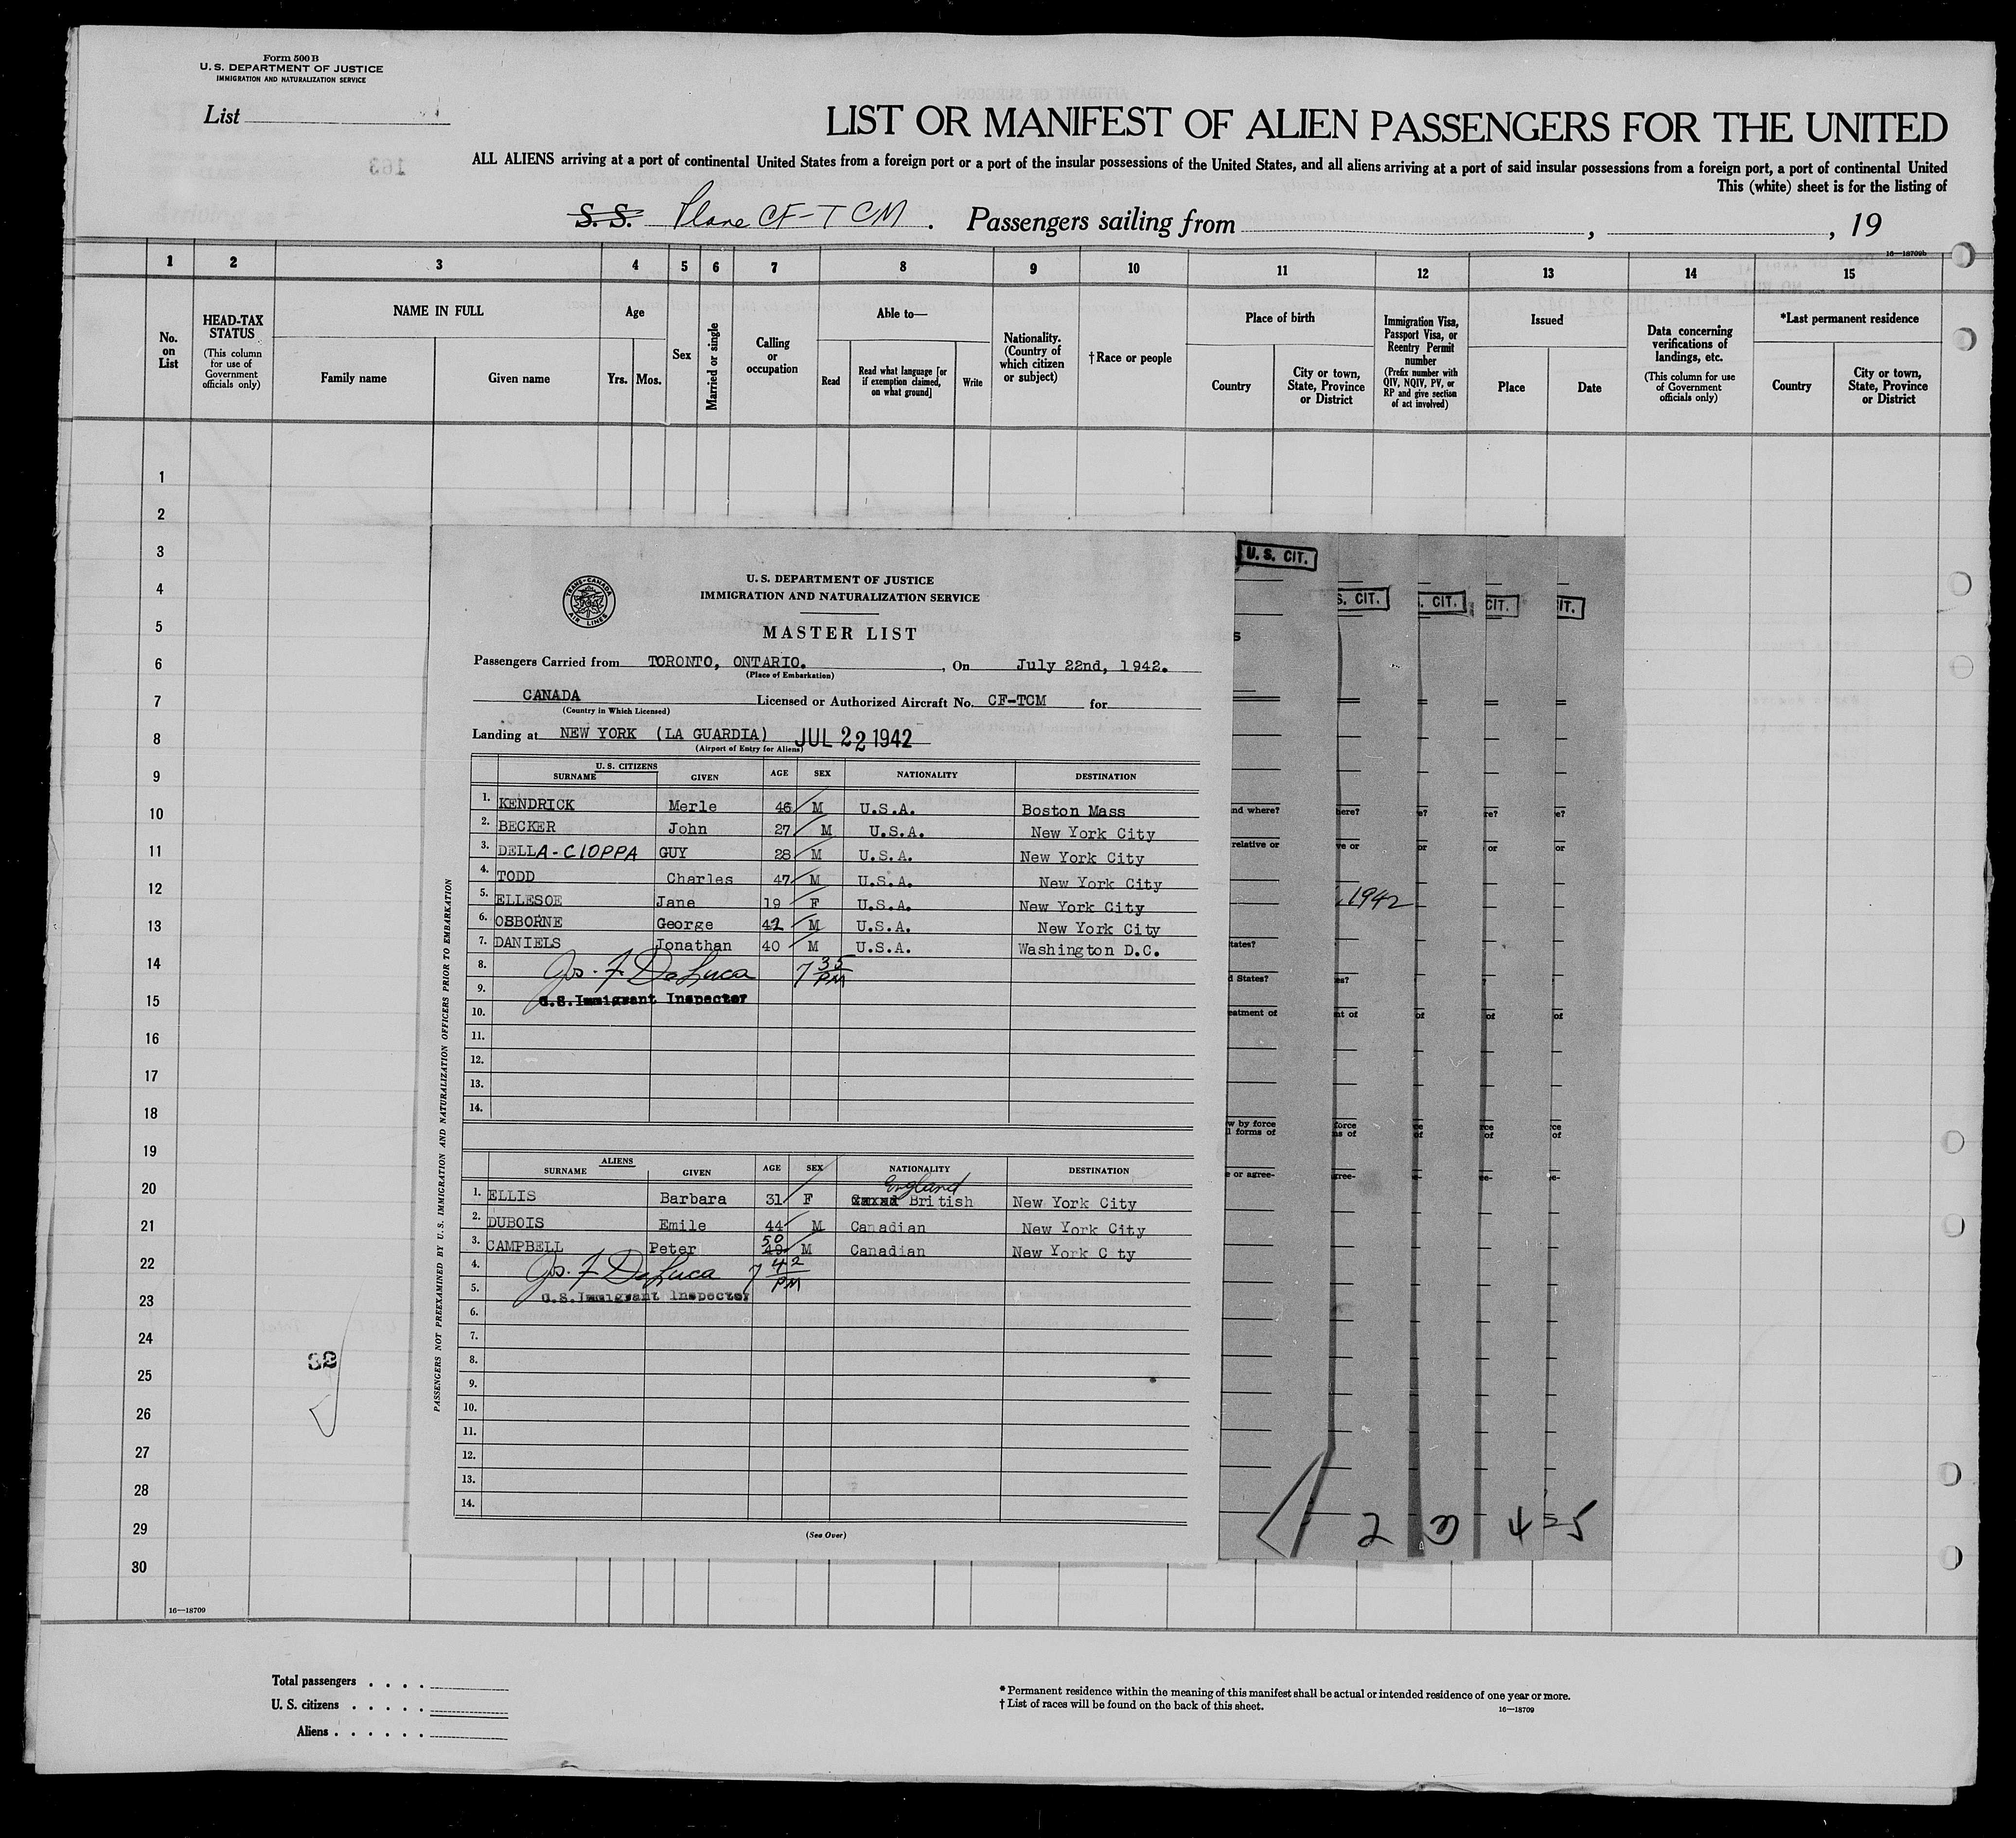 Form 500 B
U. S. DEPARTMENT OF JUSTICE
IMMIGRATION AND NATURALIZATION SERVICE
List
LIST OR MANIFEST OF ALIEN PASSENGERS FOR THE UNITED
ALL ALIENS arriving at a port of continental United States from a foreign port or a port of the insular possessions of the United States, and all aliens arriving at a port of said insular possessions from a foreign port, a port of continental United
This (white) sheet is for the listing of
S. S. Plane CF-TCM. Passengers sailing from , , 19
16—18709b
1 2 3 4 5 6 7 8 9 10 11 12 13 14 15
No. on List
HEAD-TAX STATUS
(This column for use of Government officials only)
NAME IN FULL
Family name Given name
Age
Yrs. Mos.
Sex
Married or single
Calling or occupation
Able to—
Read
Read what language [or if exemption claimed, on what ground]
Write
Nationality. (Country of which citizen or subject)
†Race or people
Place of birth
Country
City or town, State, Province or District
Immigration Visa, Passport Visa, or Reentry Permit number
(Prefix number with QIV, NQIV, PV, or RP and give section of act involved)
Issued
Place Date
Data concerning verifications of landings, etc.
(This column for use of Government officials only)
*Last permanent residence
Country
City or town, State, Province or District
1
2
3
4
5
6
7
8
9
10
11
12
13
14
15
16
17
18
19
20
21
22
23
24
25
26
27
28
29
30
163
32
TRANS-CANADA AIR LINES
U. S. DEPARTMENT OF JUSTICE
IMMIGRATION AND NATURALIZATION SERVICE
MASTER LIST
Passengers Carried from TORONTO, ONTARIO. , On July 22nd, 1942.
(Place of Embarkation)
CANADA Licensed or Authorized Aircraft No. CF-TCM for
(Country in Which Licensed)
Landing at NEW YORK (LA GUARDIA) JUL 22 1942
(Airport of Entry for Aliens)
U. S. CITIZENS
SURNAME GIVEN AGE SEX NATIONALITY DESTINATION
1. KENDRICK Merle 46 M U.S.A. Boston Mass
2. BECKER John 27 M U.S.A. New York City
3. DELLA-CIOPPA GUY 28 M U.S.A. New York City
4. TODD Charles 47 M U.S.A. New York City
5. ELLESOE Jane 19 F U.S.A. New York City
6. OSBORNE George 42 M U.S.A. New York City
7. DANIELS Jonathan 40 M U.S.A. Washington D.C.
8. Jos. F DeLuca 7 35 PM
9. U.S.Immigrant Inspector
10.
11.
12.
13.
14.
ALIENS
SURNAME GIVEN AGE SEX NATIONALITY DESTINATION
England
1. ELLIS Barbara 31 F British New York City
2. DUBOIS Emile 44 M Canadian New York City
50
3. CAMPBELL Peter 49 M Canadian New York C ty
4. Jos. F DeLuca 7 42 PM
5. U.S.Immigrant Inspector
6.
7.
8.
9.
10.
11.
12.
13.
14.
(See Over)
PASSENGERS NOT PREEXAMINED BY U.S. IMMIGRATION AND NATURALIZATION OFFICERS PRIOR TO EMBARKATION
U. S. CIT.
S. CIT. . CIT. CIT. IT.
s
nd where? here? e? re? e?
relative or ve or or or or
, 1942
tates?
d States? es? ? ?
eatment of nt of of of of
w by force force ce rce rce
l forms of ns of of of of
e or agree- gree- ee- e- e-
2 3 4 5
16—18709
Total passengers . . . .
U. S. citizens . . . . .
Aliens . . . . . .
* Permanent residence within the meaning of this manifest shall be actual or intended residence of one year or more.
† List of races will be found on the back of this sheet.
16—18709